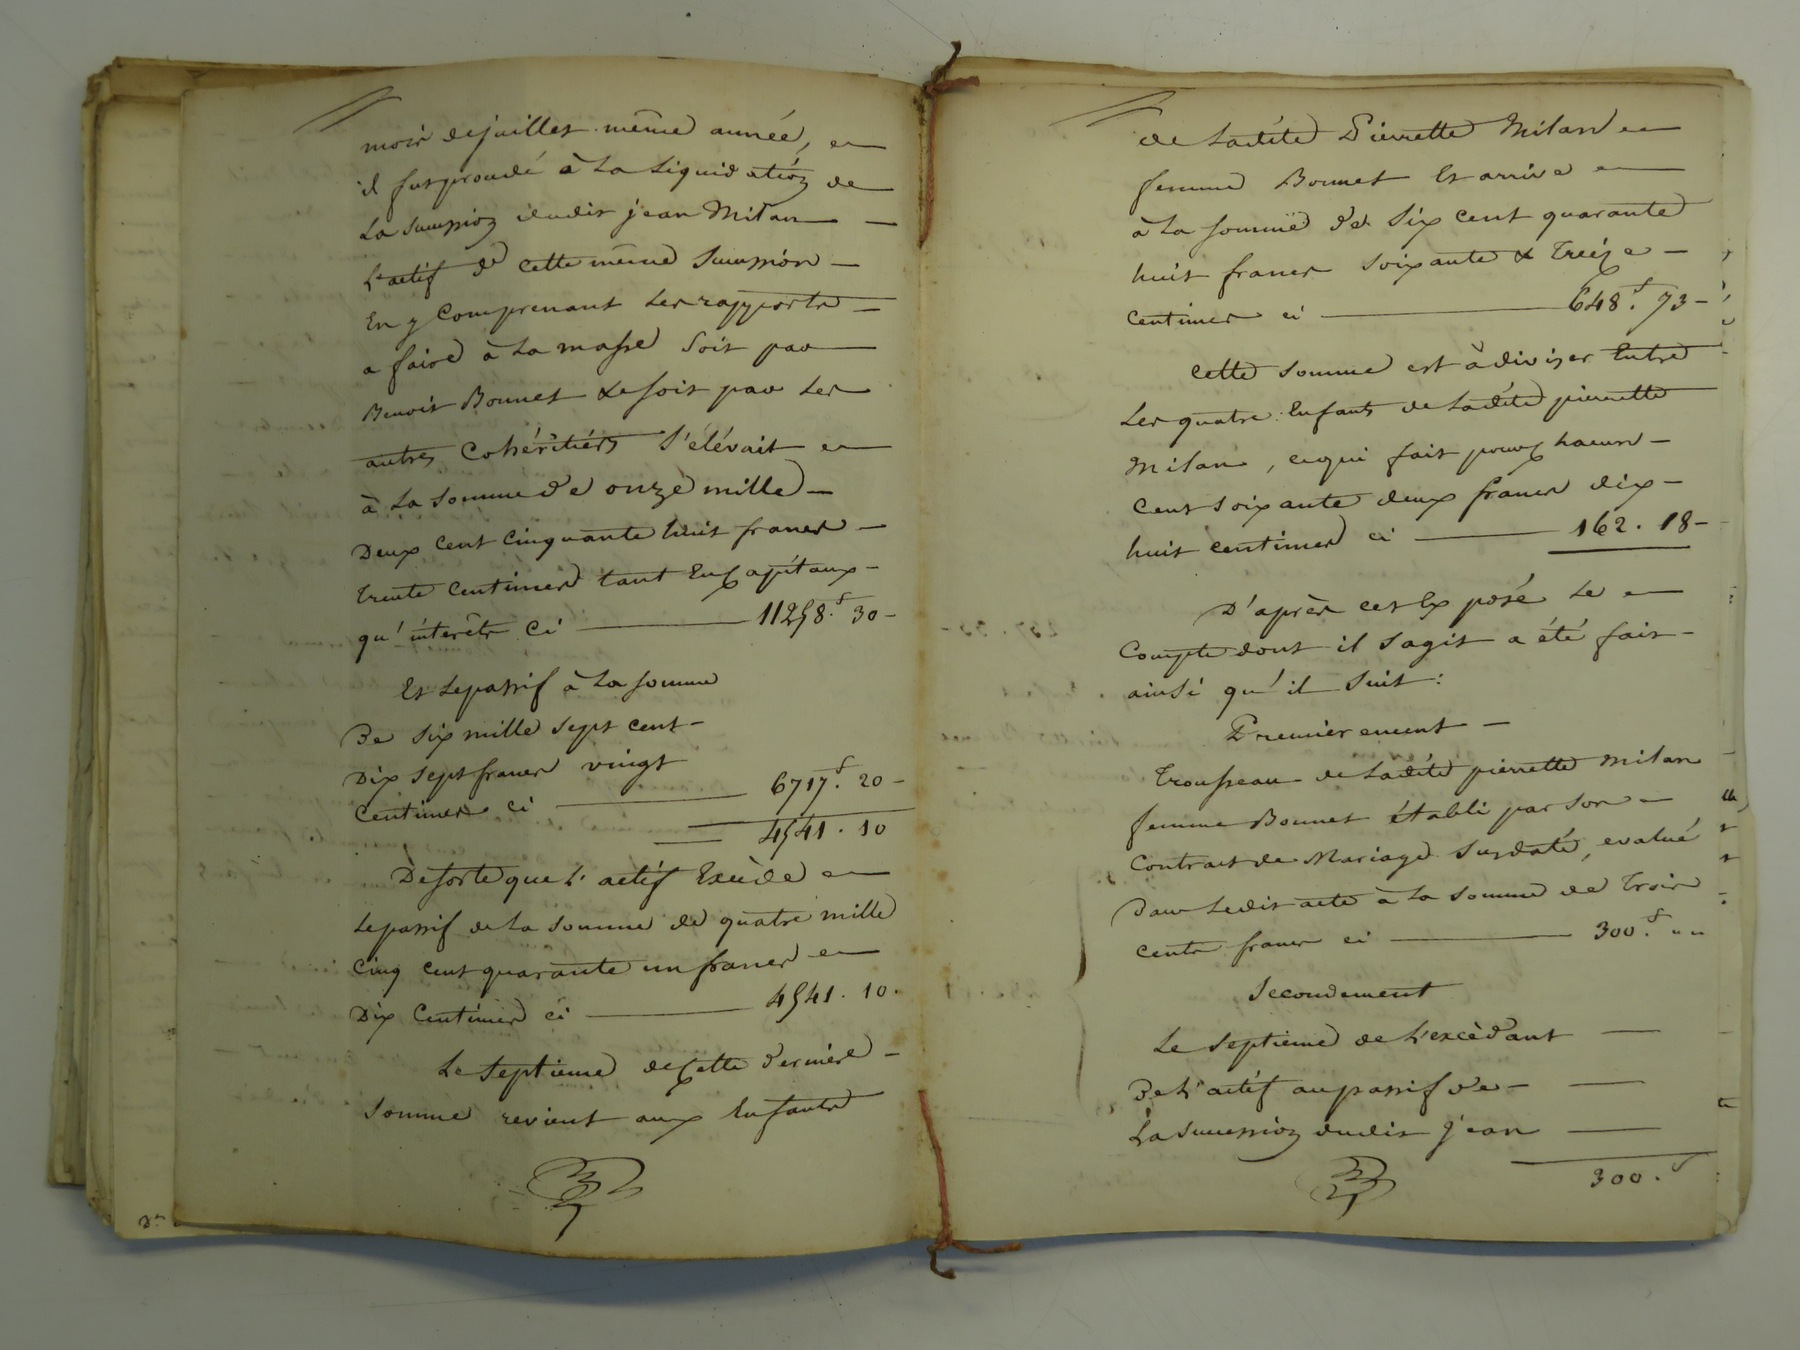 mois de juillet même année, en
il fut proudé à la Liquidation de
La Succession dudit jean Milan
L'actif de cette même Succession
En y Comprenant Les rapports
a faire à La masse Soit par
Benoit Bonnet & Soit par Les
autres Cohéritiérs S'élévait
à La Somme de onze mille
Deux Cent Cinquante huit francs
trente Centimes tant En Capitaux
qu'intérêts Ci 11258.f 30
Et Le passif à La Somme
De Six mille Sept Cent
Dix Sept francs vingt
Centimes Ci 6717.f 20
4541. 10
De Sorte que L'actif Excède
Le passif de La Somme de quatre mille
Cinq Cent quarante un francs
Dix Centimes Ci 4541. 10.
Le Septième de Cette Dernière
Somme revient aux Enfants
de Ladite Pierrette Milan
femme Bonnet Et arrive
à La Somme de Six Cent quarante
huit francs Soixante & Treize
Centimes ci 648.f 73
Cette Somme est à diviser Entre
Les quatre Enfants de Ladite pierrette
Milan, ce qui fait pour Chacun
Cent Soixante deux francs dix
huit Centimes ci 162. 18
D'après cet Exposé Le
Compte dont il S'agit a été fait
ainsi qu'il Suit :
Premièrement
Trousseau de Ladite pierrette Milan
femme Bonnet établi par Son
Contrat de Mariage Susdaté, evalué
Dans Ledit acte à La Somme de Trois
Cents francs ci 300.f " "
Secondement
Le Septième de L'excédant
De L'actif au passif de
La Succession dudit jean
300.f